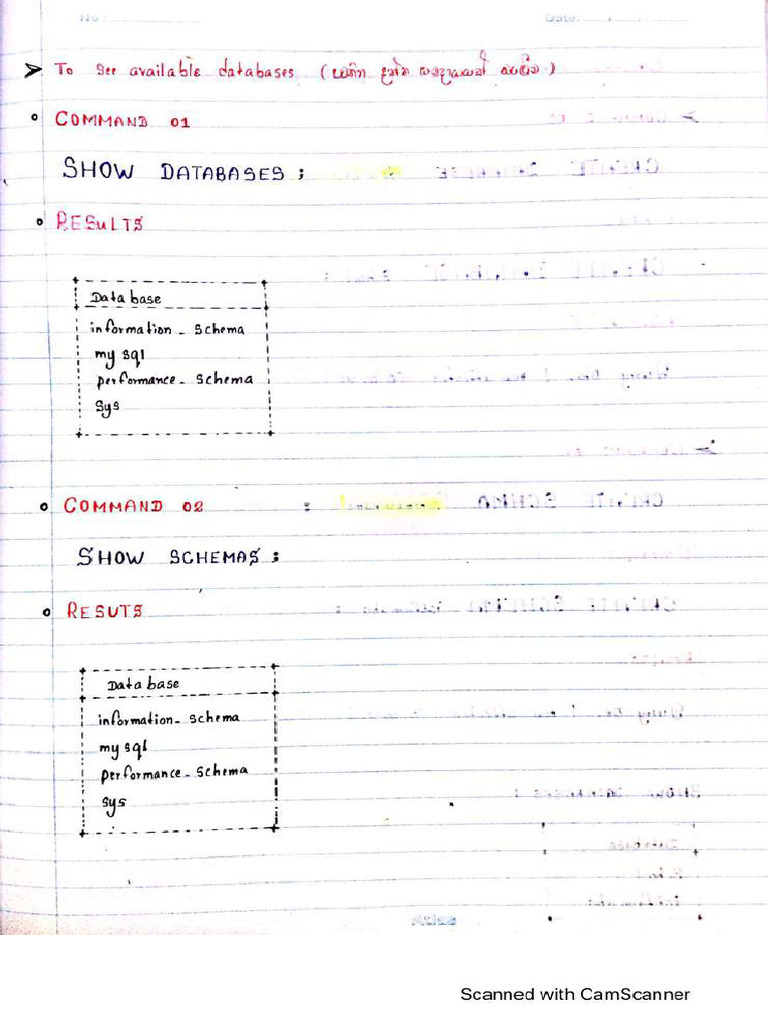 No: Date:
➤ To see available databases
COMMAND 01
SHOW DATABASES;
RESULTS
Database
information_schema
mysql
performance_schema
sys
COMMAND 02
SHOW SCHEMAS;
RESUTS
Database
information_schema
mysql
performance_schema
sys
Scanned with CamScanner